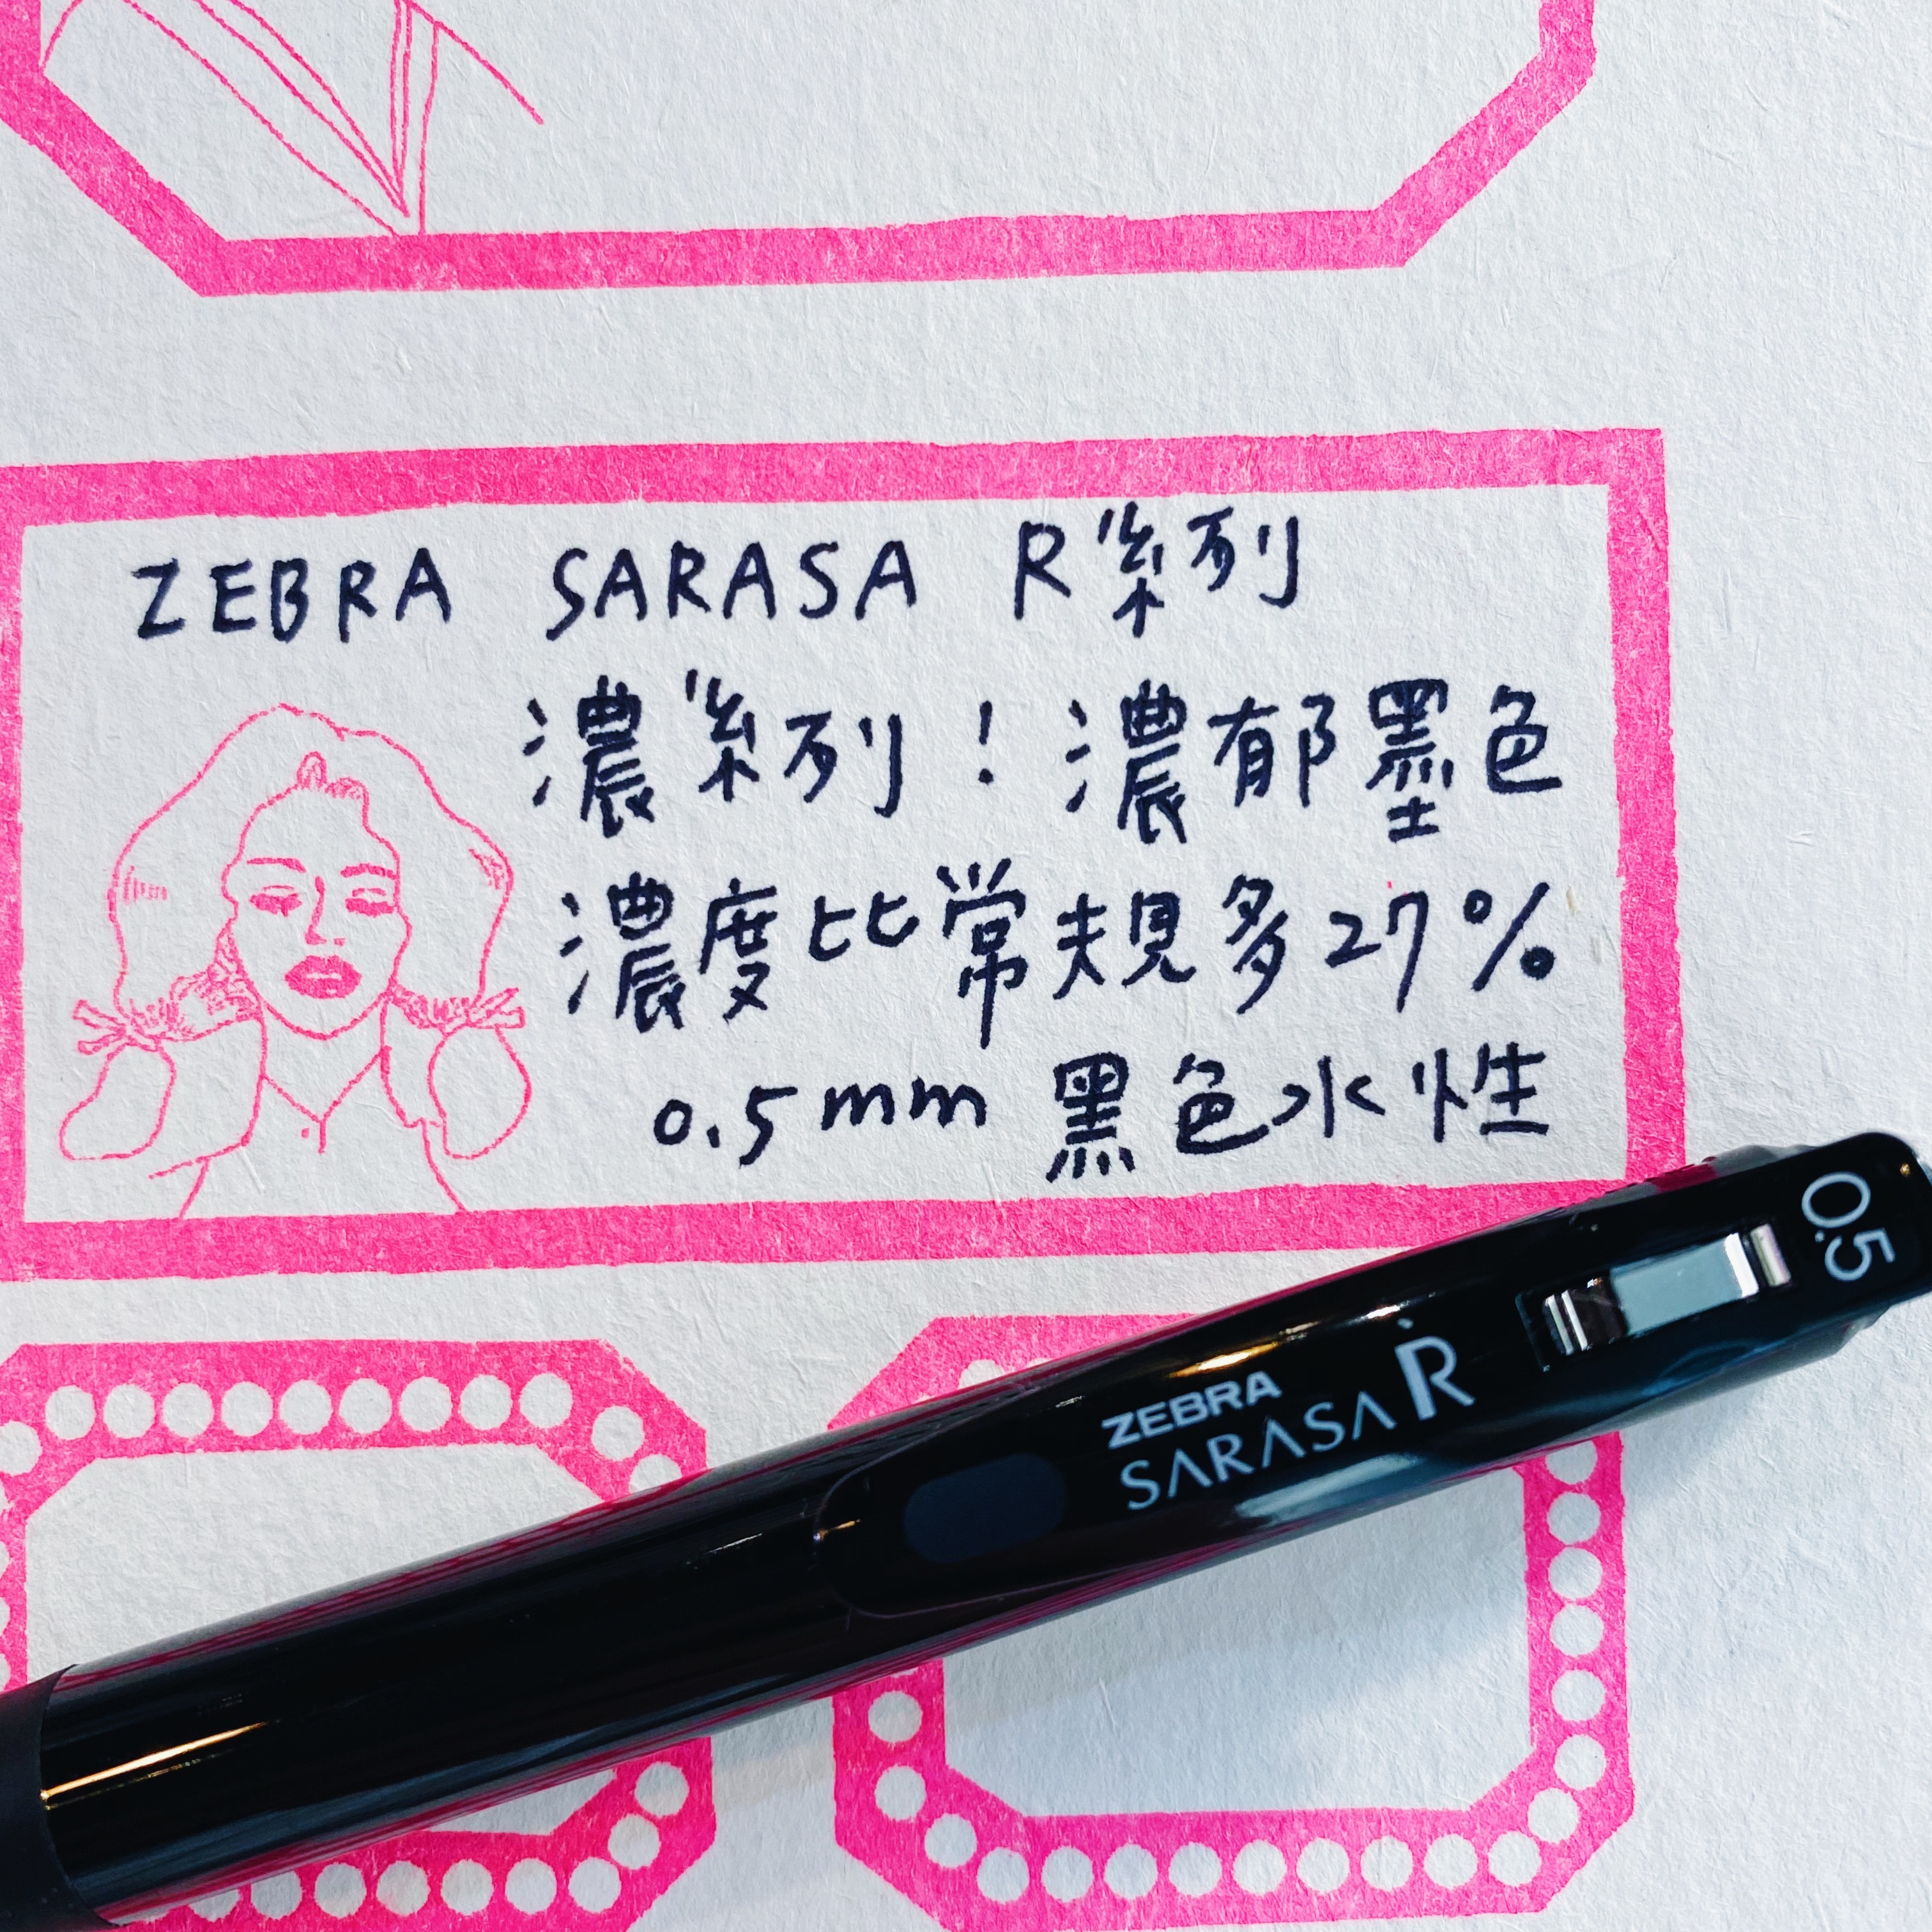 ZEBRA SARASA R系列
濃系列！濃郁墨色
濃度比常規多27%
0.5mm 黑色水性
0.5
ZEBRA
SARASA R